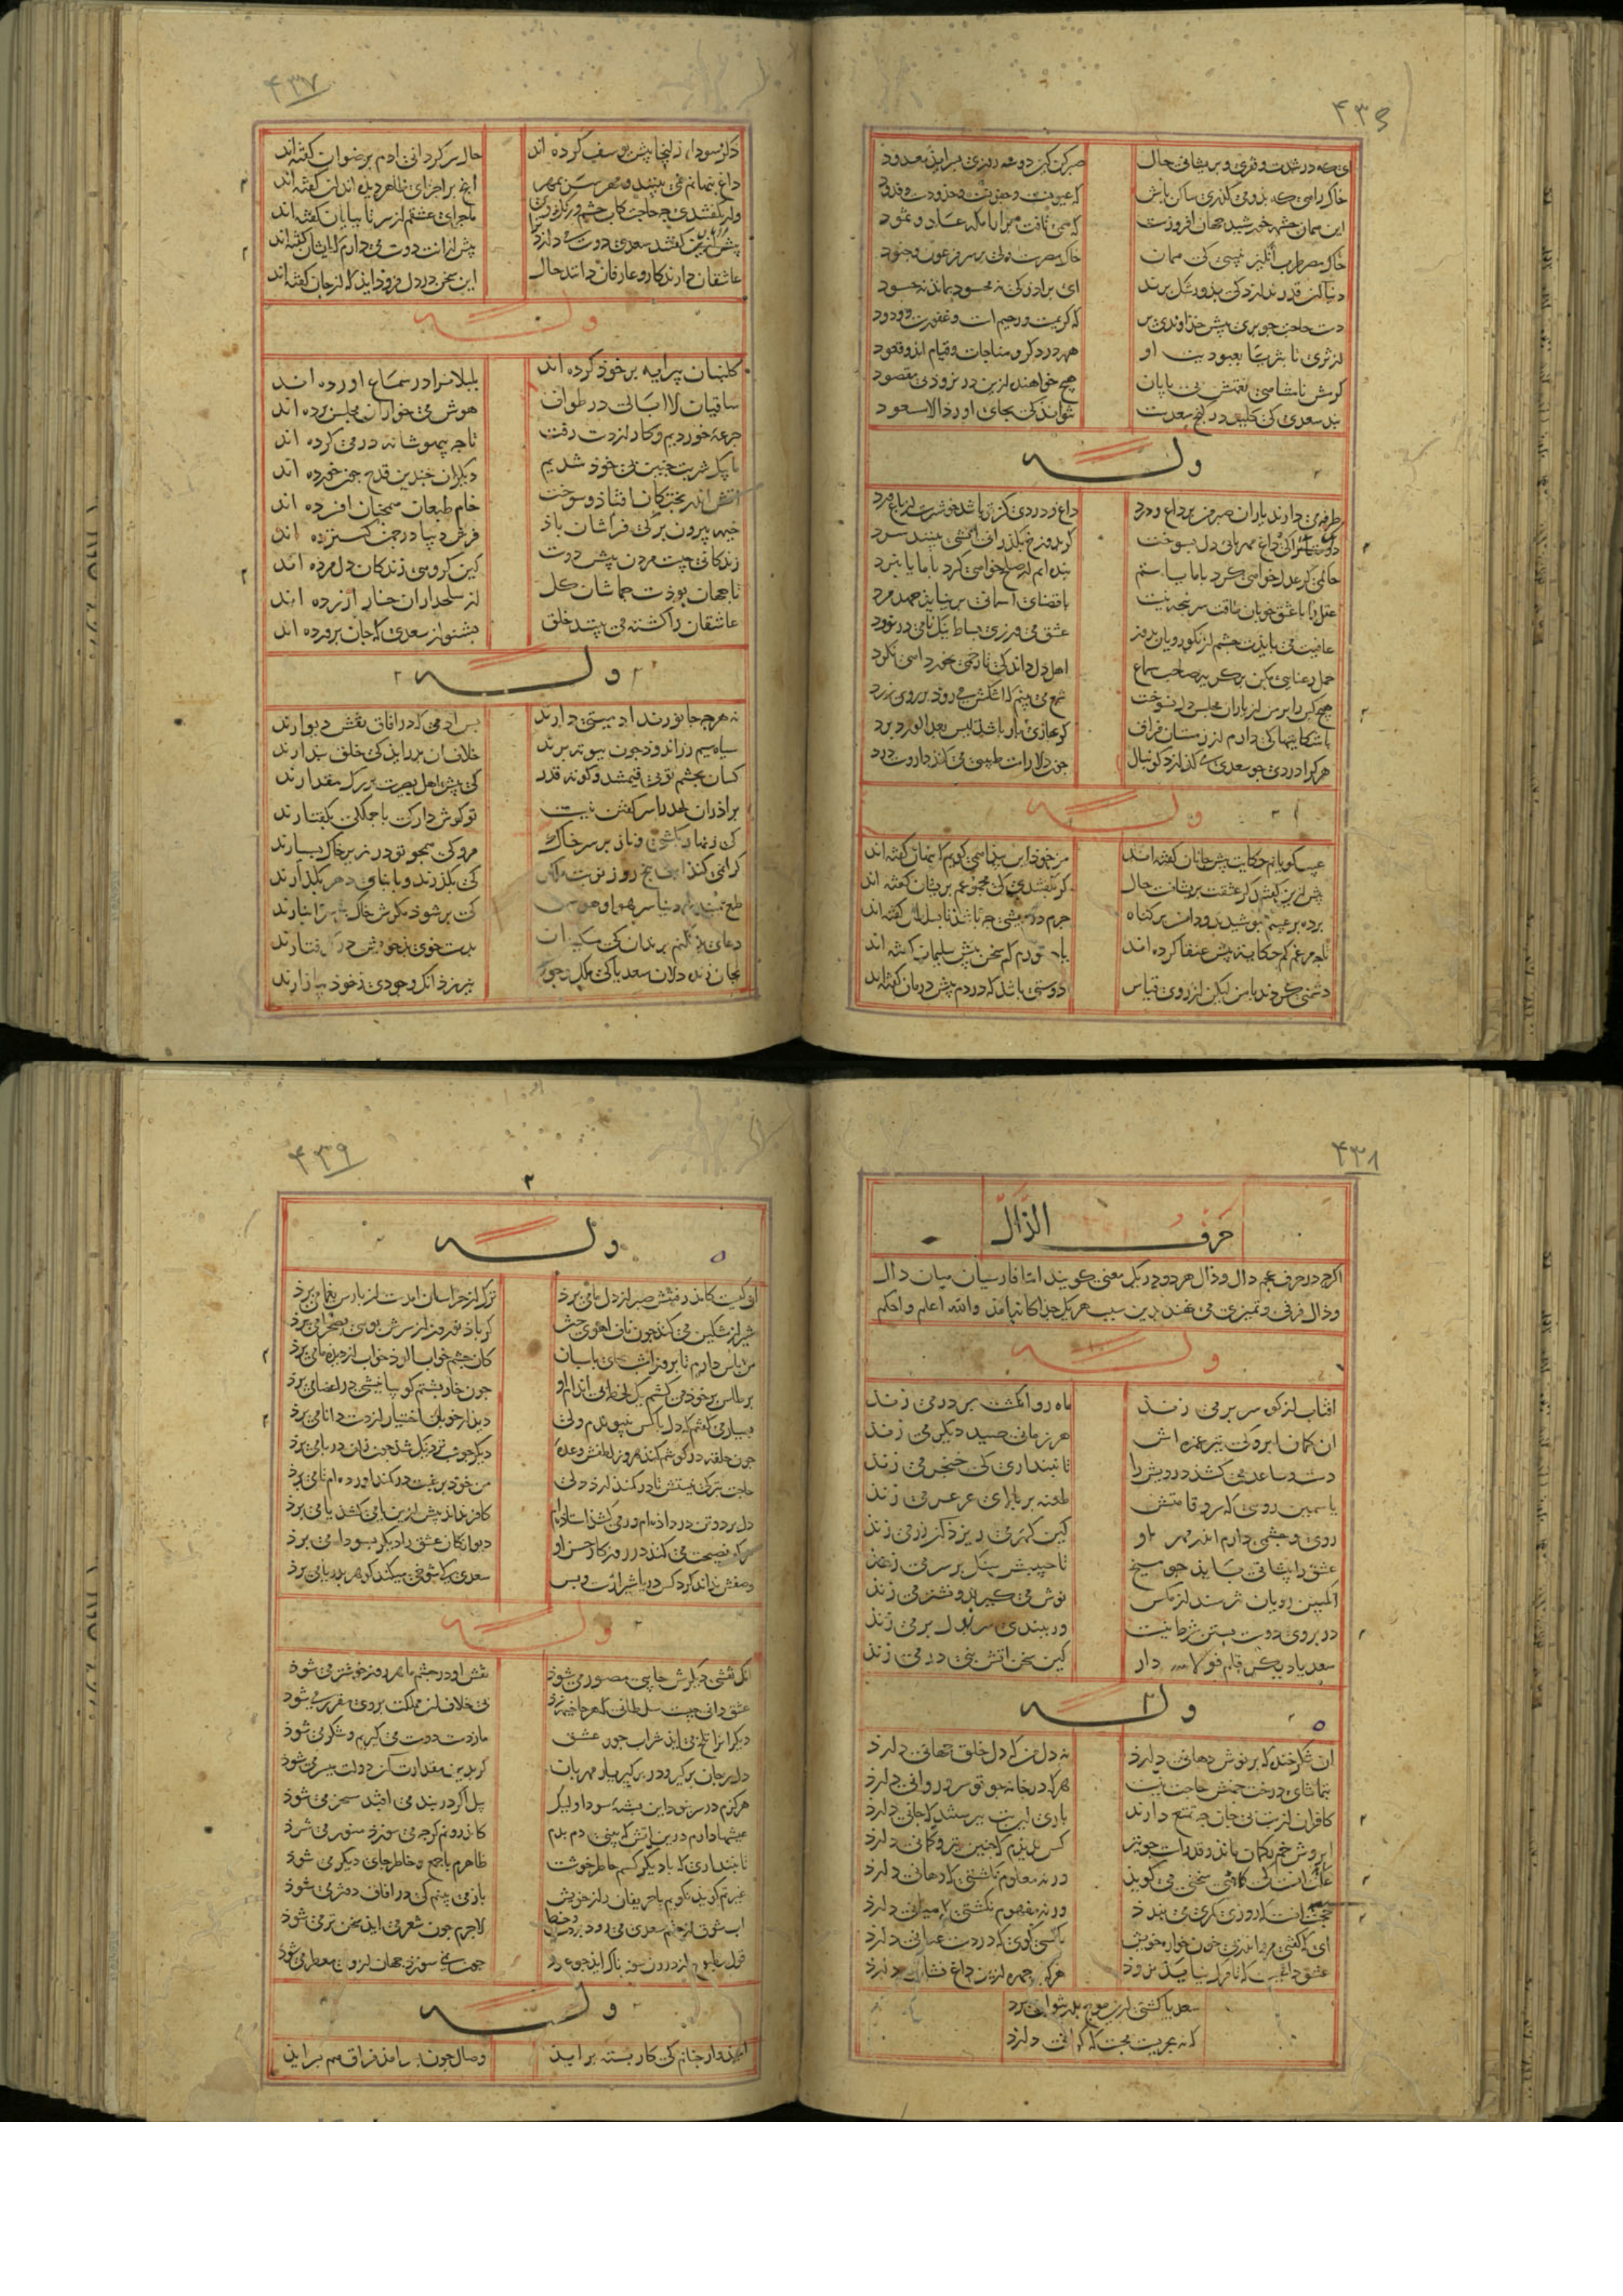 ۴۳۶
ای که در شدت و فقری و پریشانی حال
صبر کن کین دو سه روزی بسر اید معدود
خاک راهی که برو می کذری ساکن باش
که عیونست و جفونست و خدودست و قدود
این همان چشمه خورشید جهان افروزست
که همی تافت بر ارامکه عاد و ثمود
خاک مصر طرب انکیز نبینی که همان
خاک مصرست ولی بر سر فرعون و جنود
دنیا آن قدر ندارد که بدو رشک برند
ای برادر که نه محسود بماند نه حسود
دست حاجت چو بری پیش خداوندی بر
که کریمست و رحیم است و غفورست و ودود
از ثری تا بثریا بعبودیت او
همه در ذکر و مناجات و قیام اند و قعود
کرمش نامتناهی نعمش بی پایان
هیچ خواهنده ازین در نرود بی مقصود
پند سعدی که کلید در کنج سعدست
نتواند که بجای اورد الا مسعود
وله
طرفه می دارند یاران صبر من بر داغ و درد
داغ و دردی کز تو باشد خوشترست از باغ ورد
دوستانرا که داغ مهربانی دل بسوخت
کر بدوزخ بکذرانی آتشی بینند سرد
حاکمی کر عدل خواهی کرد با ما یا ستم
بنده ایم ار صلح خواهی کرد با ما یا نبرد
عقل را با عشق خوبان طاقت سرپنجه نیست
با قضای اسمانی بر نیاید جهد مرد
عافیت می بایدت چشم از نکورویان بدوز
عشق می ورزی بساط نیک نامی در نورد
اهل دل داند که تا زخمی نخورد اهی نکرد
هیچ کس را بر من از یاران مجلس دل نسوخت
شمع می بینم که اشکش می رود بر روی زرد
با شکایتها که دارم از زمستان فراق
کر بهاری باز باشد لیس بعد الورد برد
هر کرا دردی چو سعدی می کدازد کو منال
چون دلارامت طبیبی می کند داروست درد
وله
عیب کویانم حکایت پیش جانان کفته اند
من خود این پیدا همی کویم که پنهان کفته اند
پیش ازین کفتند کز عشقت پریشانست حال
کر بکفتندی که مجموعم پریشان کفته اند
پرده بر عیبم نپوشیدند و دامن بر کناه
جرم درویشی چه باشد تا بسلطان کفته اند
تا چه مرغم کم حکایت پیش عنقا کرده اند
یا چه مورم کم سخن پیش سلیمان کفته اند
دشمنی کردند با من لیکن از روی قیاس
دوستی باشد که دردم پیش درمان کفته اند
۴۳۷
ذکر سودای زلیخا پیش یوسف کرده اند
حال سرکردانی ادم برضوان کفته اند
داغ پنهانم نمی بینند و مهر سر بمهر
انچ بر اجزای ظاهر دیده اند ان کفته اند
ور نکفتندی چه حاجت کاب چشم و رنک روی
ماجرای عشقم از سر تا بپایان کفته اند
پیش ازین کفتند سعدی دوست می دارد
پیش ازانت دوست می دارم که ایشان کفته اند
عاشقان دارند کار و عارفان دانند حال
این سخن در دل فرود اید که از جان کفته اند
وله
کلبنان پیرایه بر خود کرده اند
بلبلانرا در سماع اورده اند
ساقیان لاابالی در طواف
هوش می خواران مجلس برده اند
جرعه خوردیم و کار از دست رفت
تا چه بیهوشانه در می کرده اند
ما بیک شربت چنین بی خود شدیم
دیکران چندین قدح چون خورده اند
آتش اندر پختکان افتاد و سوخت
خام طبعان همچنان افسرده اند
خیمه بیرون بر که فراشان باد
فرش دیبا در چمن کسترده اند
زندکانی چیست مردن پیش دوست
کین کروهی زندکان دل مرده اند
تا جهان بودست جماشان کل
از سلحداران خار ازرده اند
عاشقان را کشته می بینند خلق
بشنو از سعدی که جان پرورده اند
وله
نه هر چه جانورند ادمیتی دارند
بس ادمی که در افاق نقش دیوارند
سیاه سیم زر اندود چون ببوته برند
خلاف ان بدر اید که خلق پندارند
کسان بچشم تو بی قیمتند و کوته قدر
که پیش اهل بصیرت بزرک مقدارند
برادران لحدرا سر کفتن نیست
تو کوش دار که با جملکی بکفتارند
که زینهار بکشی و ناز بر سر خاک
مرو که همچو تو در زیر خاک بسیارند
کرامی کند این پنج روز نوبت
که بکذرند و بابنای دهر بکذارند
طمع مدار دنیا سر هوا و هوس
که پر شود مکرش خاک بر سر انبارند
دعای بد نکنم بر بدان که مسکینان
بدست خوی بد خویشتن کرفتارند
بجان زنده دلان سعدیا که ملک وجود
نیرزد انک وجودی ز خود بیازارند
۴۳۸
حرف الذال
اکرچه در حرف عجم دال و ذال هر دو در یک معنی کویند اما فارسیان میان دال
و ذال فرقی و تمیزی می نهند بدین سبب هر یک جداکانه اند والله اعلم و احکم
وله
افتاب از کوه سر بر می زند
ماه روا انکشت بر در می زند
ان کمان ابرو که تیر غمزه اش
هر زمانی صید دیکر می زند
دست و ساعد می کشد درویش را
تا نپنداری که خنجر می زند
یاسمین رویی که سرو قامتش
طعنه بر بالای عرعر می زند
روی و چشمی دارم اندر مهر او
کین کهر می ریزد آن زر می زند
عشق را پیشانی باید چو میخ
تا حبیبش سنک بر سر می زند
انکبین رویان نترسند از مکس
نوش می کیرند و نشتر می زند
در بروی دوست بستن شرط نیست
ور ببندی سر بدل بر می زند
سعدیا دیکر قلم فولاد دار
کین سخن اتش بنی در می زند
وله
ان شکر خنده که پر نوش دهانی دارد
نه دل من که دل خلق جهانی دارد
بتماشای درخت چمنش حاجت نیست
هر که در خانه چو تو سرو روانی دارد
کافران از بت بی جان چه تمتع دارند
باری ان بت بپرستند که جانی دارد
ابرویش خم بکمان ماند و قد راست چو تیر
کس ندیدم که چنین تیر و کمانی دارد
علت انست که کاهی سخنی می کوید
ورنه معلوم نکشتی که دهانی دارد
حجت انست که روزی کمری می بندد
ورنه مفهوم نکشتی که میانی دارد
ای که کفتی مرو اندر پی خون خواره خویش
با کسی کوی که در دست عنانی دارد
عشق داغیست که تا مرک نیاید نرود
هر که بر چهره ازین داغ نشانی دارد
سعدیا کشتی ازین موج بدر نتوان برد
که نه بحریست محبت که کرانی دارد
۴۳۹
وله
ان کیست کاندر رفتنش صبر از دل ما می برد
ترک از خراسان امدست از پارس یغما می برد
شیراز مشکین می کند چون ناف اهوی ختن
کر باد نوروز از سرش بویی بصحرا می برد
من پاس دارم تا بروز امشب بجای پاسبان
کان چشم خواب الود خواب از دیده ما می برد
بر تاس بر خود می کشم یک لحظه بی اندام او
چون خارپشتم کوییا نیشی در اعضا می برد
بسیار می کفتم که دل با کس نپیوندم ولی
دیدار خوبان اختیار از دست دانا می برد
دل برد و تن در داده ام ور می کشد استاده ام
کاخر نداند پیش ازین یا می کشد یا می برد
هرکو نصیحت می کند در روزکار حسن او
دیوانکان عشق را دیکر بسودا می برد
وصفش نداند کرد کس دریای شیرینست و بس
سعدی که شوخی میکند کوهر بدریا می برد
وله
انک نقشی دیکرش جایی مصور می شود
نقش او در چشم ما هر روز خوشتر می شود
عشق دانی چیست سلطانی که هر جا خیمه زد
بی خلاف ان مملکت بر وی مقرر می شود
دیکرانرا تلخ می اید شراب جور عشق
ما ز دست دوست می کیریم و شکر می شود
دل ز جان برکیر و در بر کیر یار مهربان
کر بدین مقدارت آن دولت میسر می شود
هرکزم در سر نبود این پیشه سودا ولیک
پیل اکر در بند می افتد مسخر می شود
عیشها دارم درین اتش که بینی دم بدم
کاندرونم کرچه می سوزد منور می شود
تا نپنداری که با دیکر کسم خاطر خوشست
ظاهرم با جمع و خاطر جای دیکر می شود
غیرتم کوید نکویم با حریفان راز خویش
باز می بینم که در افاق دفتر می شود
اب شوق از چشم سعدی می رود بر دست و خط
لاجرم چون شعر می اید سخن تر می شود
قول مطبوع از درون سوزناک اید که عود
چون همی سوزد جهان از وی معطر می شود
وله
امیدوار چنانم که کار بسته براید
وصال چون بسر امد فراق هم بسر اید